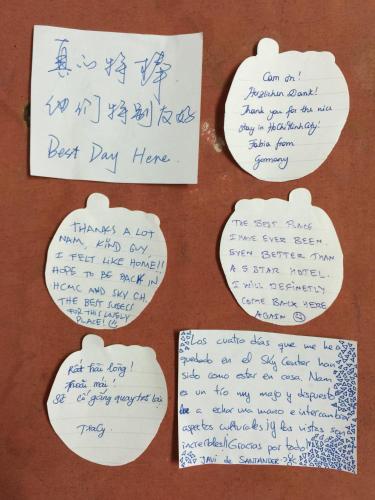 真心特棒.
他们特别友好
Best Day Here.
Cảm ơn!
Herzlichen Dank!
Thank you for the nice
stay in Ho Chi Minh City!
Fabia from
Germany
THANKS A LOT
NAM, KIND GUY,
I FELT LIKE HOME!!
HOPE TO BE BACK IN
HCMC AND SKY CH.
THE BEST
FOR THIS LOVELY
PLACE!
THE BEST PLACE
I HAVE EVER BEEN.
EVEN BETTER THAN
A 5 STAR HOTEL.
I WILL DEFINETLY
COME BACK HERE
AGAIN
Rất hài lòng!
Thoải mái!
Sẽ cố gắng quay trở lại
ThaCy
Los cuatro días que me he
quedado en el Sky Center han
sido como estar en casa. Nam
es un tío muy majo y dispuesto
a echar una mano e intercambiar
aspectos culturales ¡y las vistas son
increíbles! ¡Gracias por todo!
JAVI de SANTANDER